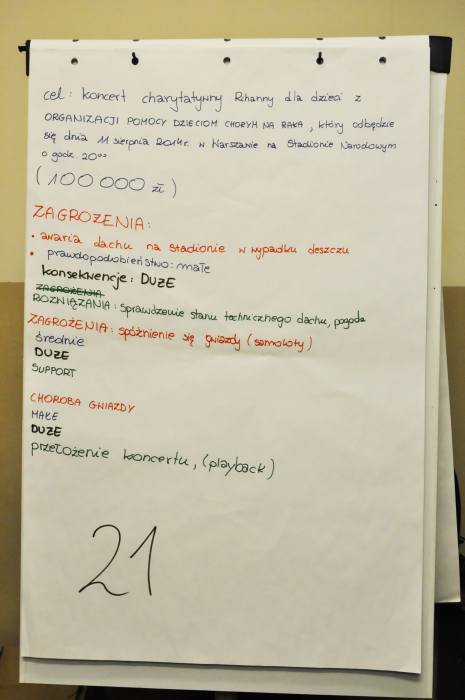 cel: koncert charytatywny Rihanny dla dzieci z
ORGANIZACJI POMOCY DZIECIOM CHORYM NA RAKA, który odbędzie
się dnia 11 sierpnia 2014r. w Warszawie na Stadionie Narodowym
o godz. 20⁰⁰
(100 000 zł)
ZAGROŻENIA:
• awaria dachu na stadionie w wypadku deszczu
• prawdopodobieństwo: małe
konsekwencje: DUŻE
ZAGROŻENIA
ROZWIĄZANIA: sprawdzenie stanu technicznego dachu, pogoda
ZAGROŻENIA: spóźnienie się gwiazdy (samoloty)
średnie
DUŻE
SUPPORT
CHOROBA GWIAZDY
MAŁE
DUŻE
przełożenie koncertu, (playback)
21